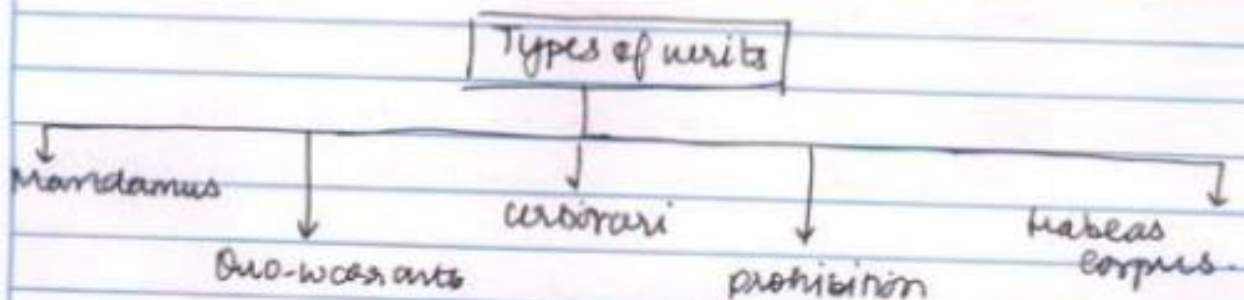 Types of writs
Mandamus
Quo-warranto
certiorari
prohibition
Habeas
corpus.